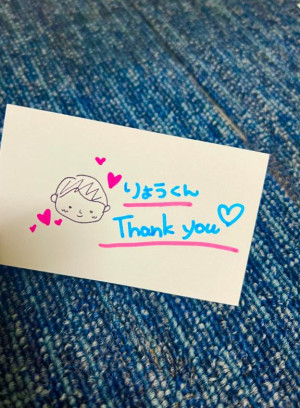 りょうくん
Thank you